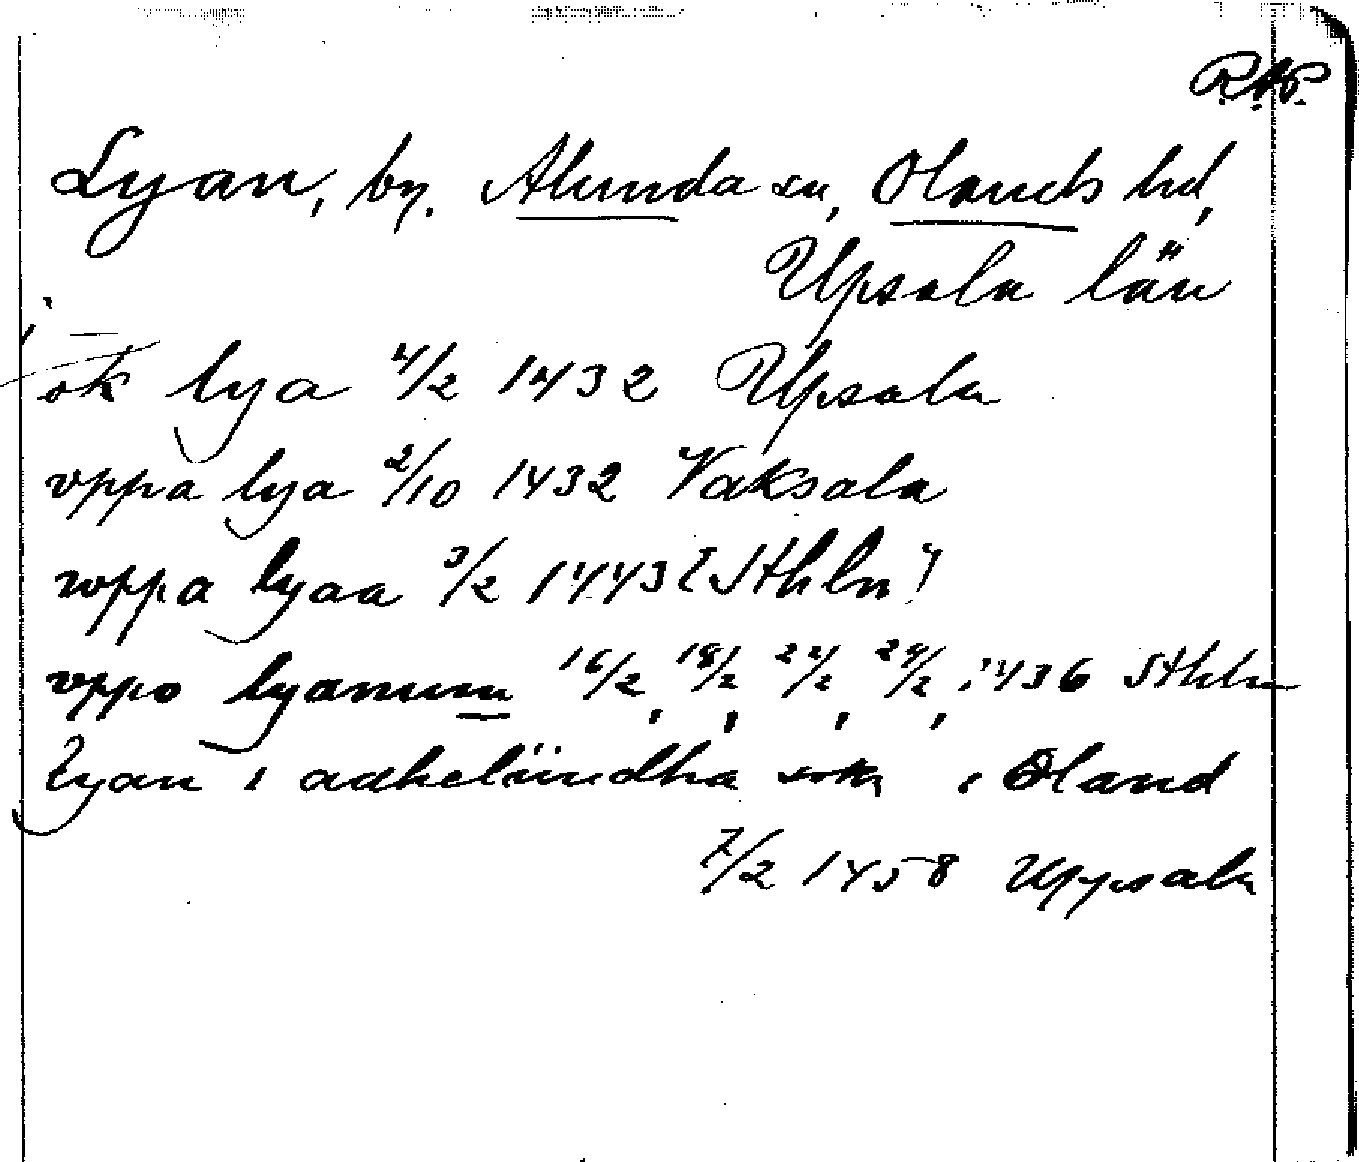 R.A.P.
Lyan, by. Alunda sn, Olands hd,
Upsala län
ok lya 4/2 1432 Upsala
vppa lya 2/10 1432 Vaksala
wppa lyaa 3/2 1443 [Sthlm]
vppo lyanum 16/2, 18/2, 21/2, 24/2, 1436 Sthlm
lyan i adhelündha sokn i Oland
7/2 1458 Uppsala